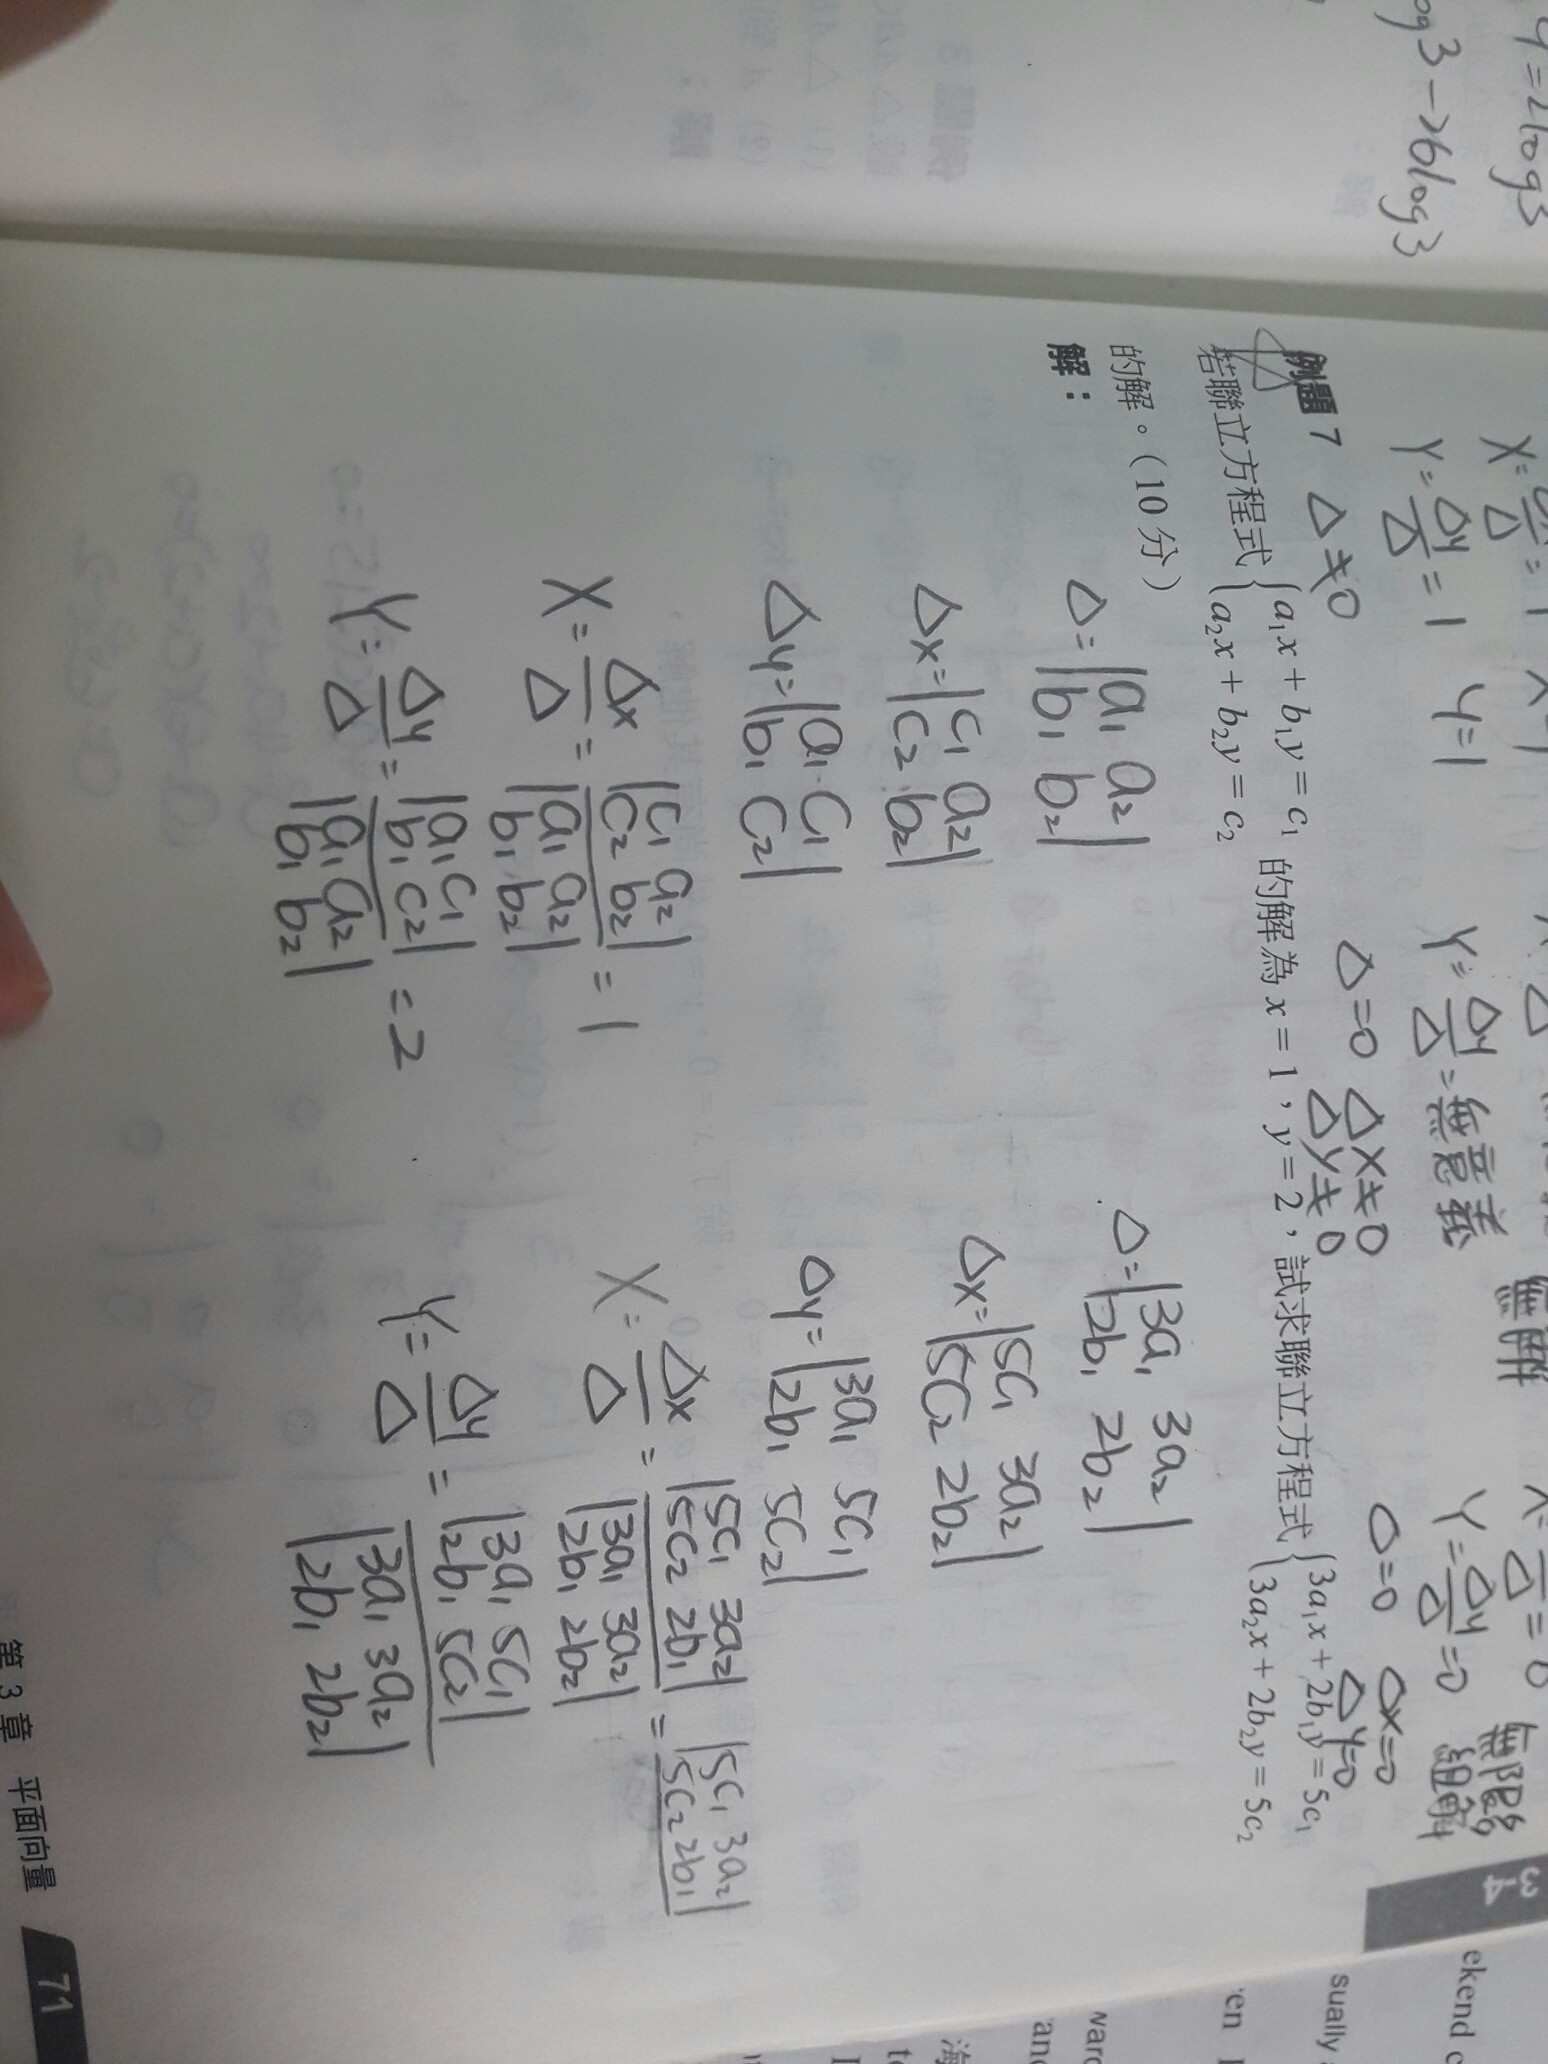 y=2log3
og3-26log3
Y=Δy/Δ=1 y=1
Y=Δy/Δ=無意義 無解
Y=Δy/Δ=0 無限多組解
例題 7 Δ≠0
Δ=0 Δx≠0 Δy≠0
Δ=0 Δx=0 Δy=0
若聯立方程式{a₁x + b₁y = c₁ a₂x + b₂y = c₂ 的解為 x = 1,y = 2,試求聯立方程式{3a₁x + 2b₁y = 5c₁ 3a₂x + 2b₂y = 5c₂
的解。(10 分)
解:
Δ=|a₁ a₂|
|b₁ b₂|
Δx=|c₁ a₂|
|c₂ b₂|
Δy=|a₁ c₁|
|b₁ c₂|
X=Δx/Δ=|c₁ a₂|
|c₂ b₂|
|a₁ a₂|
|b₁ b₂|
=1
Y=Δy/Δ=|a₁ c₁|
|b₁ c₂|
|a₁ a₂|
|b₁ b₂|
=2
Δ=|3a₁ 3a₂|
|2b₁ 2b₂|
Δx=|5c₁ 3a₂|
|5c₂ 2b₂|
Δy=|3a₁ 5c₁|
|2b₁ 5c₂|
X=Δx/Δ=|5c₁ 3a₂|
|5c₂ 2b₁|
|3a₁ 3a₂|
|2b₁ 2b₂|
=|5c₁ 3a₂|
|5c₂ 2b₁|
Y=Δy/Δ=|3a₁ 5c₁|
|2b₁ 5c₂|
|3a₁ 3a₂|
|2b₁ 2b₂|
第 3 章 平面向量 71
ekend
sually